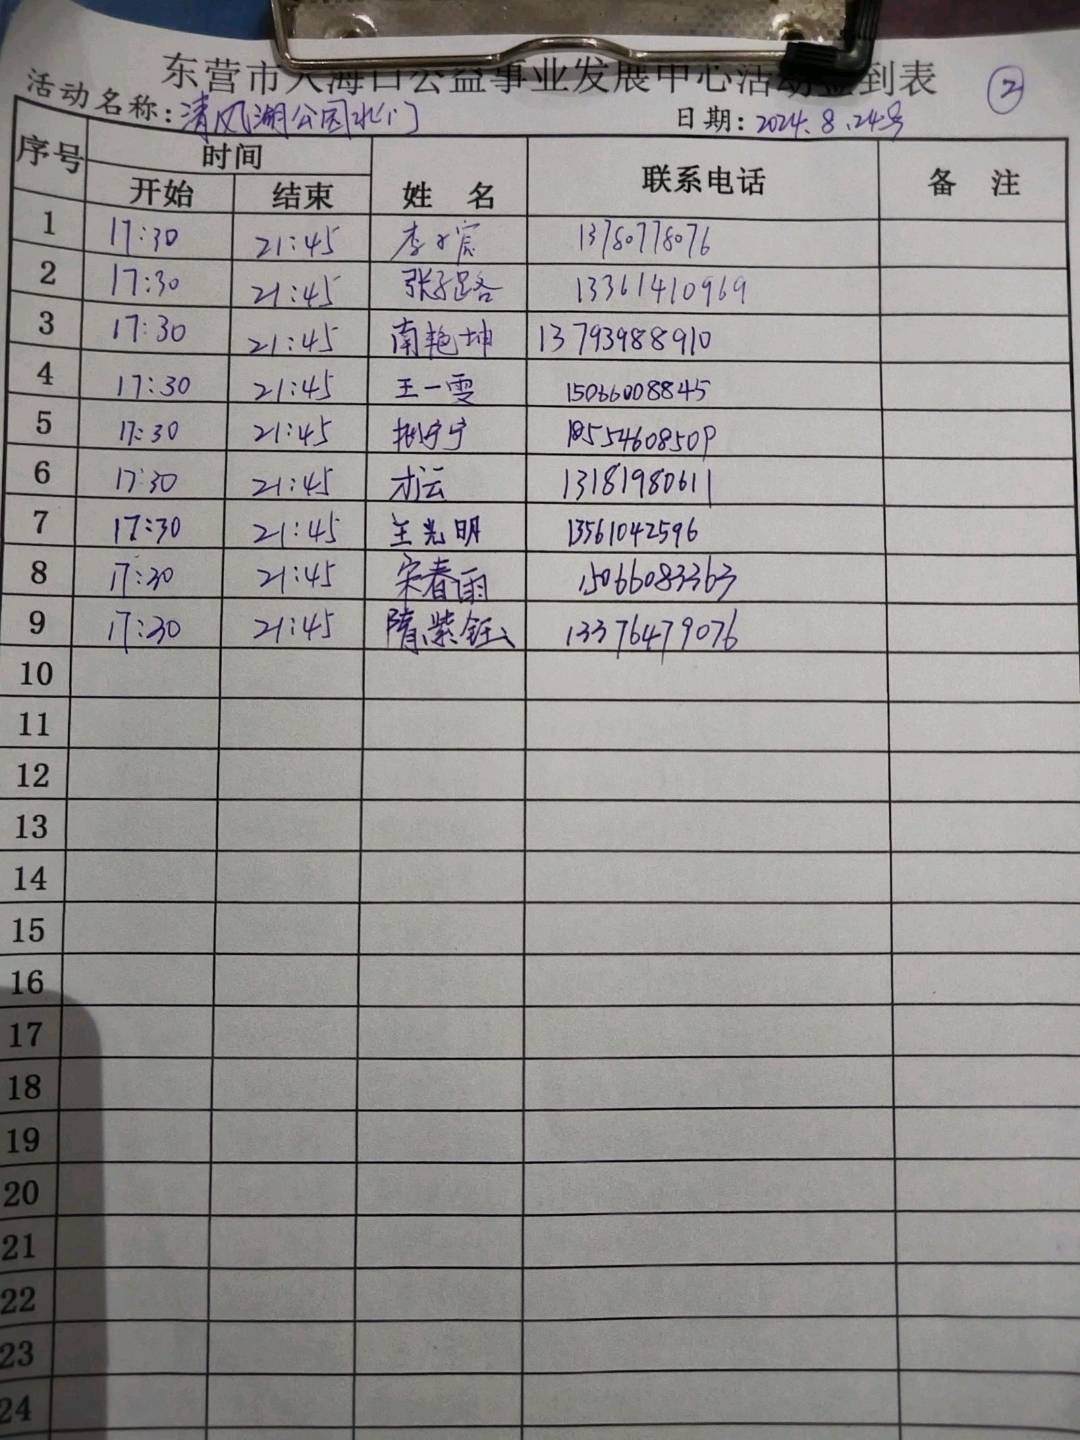 东营市大海口公益事业发展中心活动签到表 ②
活动名称:清风湖公园水门 日期:2024.8.24号
序号 时间 姓名 联系电话 备注
开始 结束
1 17:30 21:45 李 13780778076
2 17:30 21:45 张路 13361410969
3 17:30 21:45 南艳坤 13793988910
4 17:30 21:45 王一雯 15066008845
5 17:30 21:45 宁宁 18554608509
6 17:30 21:45 云 13181980611
7 17:30 21:45 王光明 13561042596
8 17:30 21:45 宋春雨 15066083363
9 17:30 21:45 隋紫钰 13376479076
10
11
12
13
14
15
16
17
18
19
20
21
22
23
24